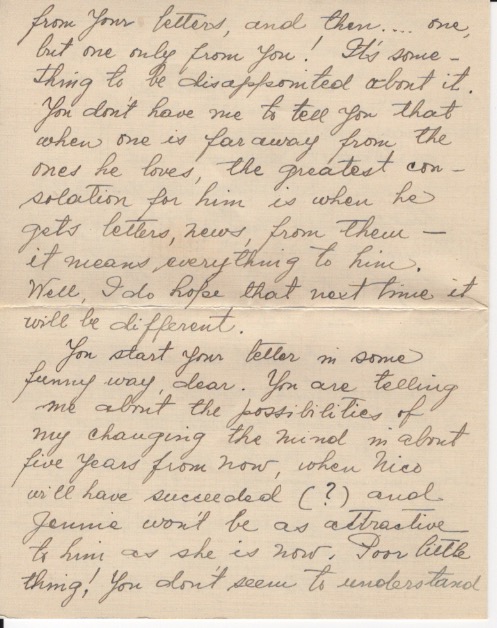 from your letters, and then.... one,
but one only from you! It's some-
thing to be disappointed about it.
You don't have me to tell you that
when one is far away from the
ones he loves, the greatest con-
solation for him is when he
gets letters, news, from them –
it means everything to him.
Well, I do hope that next time it
will be different.
You start your letter in some
funny way, dear. You are telling
me about the possibilities of
my changing the mind in about
five years from now, when Nico
will have succeeded (?) and
Jennie won't be as attractive
to him as she is now. Poor little
thing! You don't seem to understand